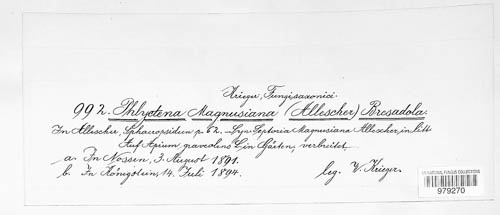 Krieger, Fungi saxonici.
992. Phlyctena Magnusiana (Allescher) Bresadola.
In Allescher, Sphaeropsideen p. 62. Syn. Septoria Magnusiana Allescher, in litt.
Auf Apium graveolens L. in Gärten, verbreitet.
a. In Nossen, 3. August 1891.
b. In Königstein, 14. Juli 1894. leg. W. Krieger.
US NATIONAL FUNGUS COLLECTIONS
979270